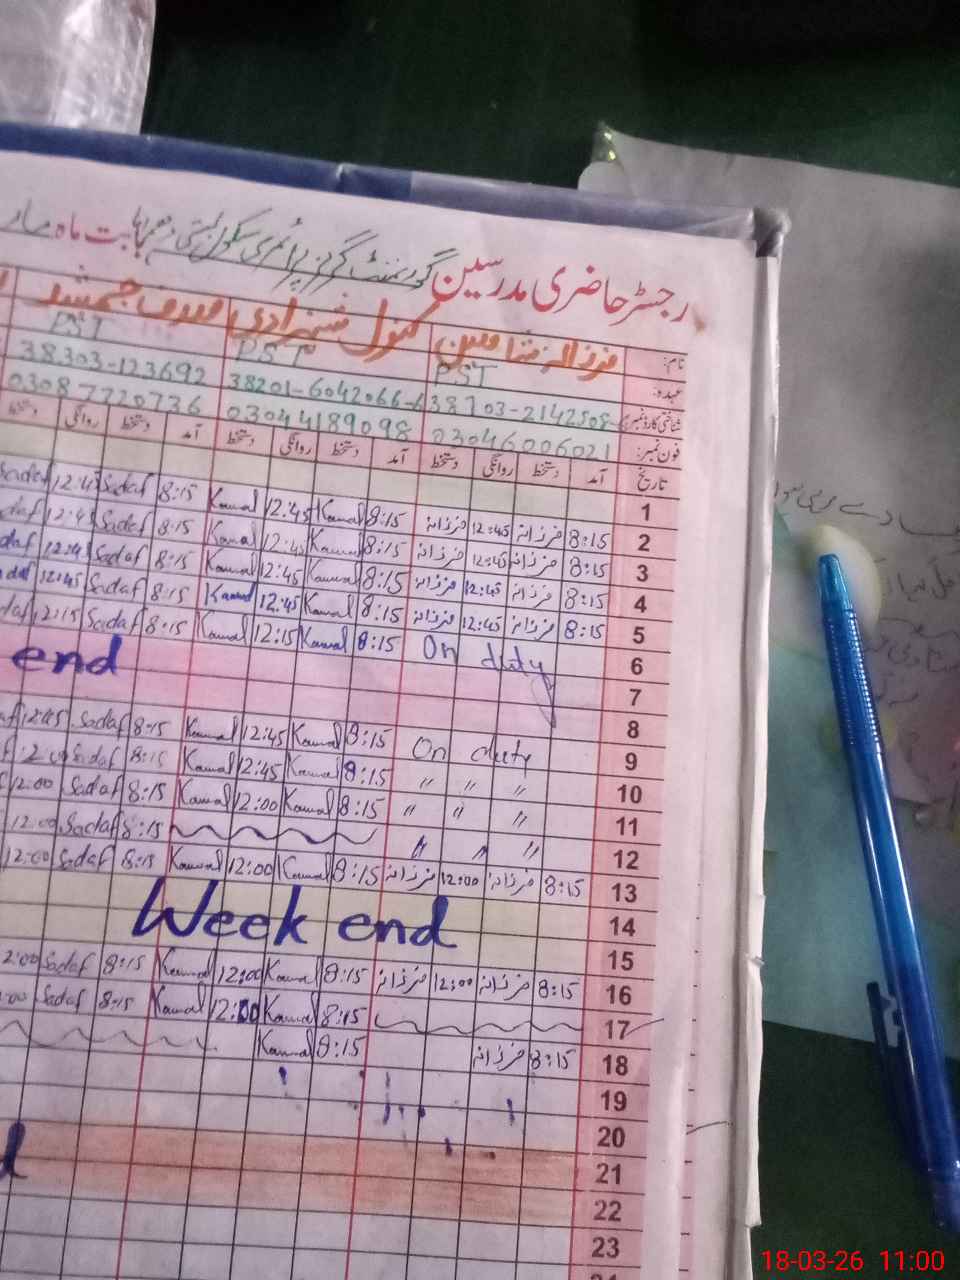 رجسٹر حاضری مدرسین گورنمنٹ گرلز پرائمری سکول بستی بابت ماہ
نام: فرزانہ شاہین کنول شہزادی صدف جمشید
عہدہ: PST PST PST
شناختی کارڈ نمبر: 38103-2142508- 38201-6042066-6 38303-123692
فون نمبر: 03046006021 03044189098 03087720736
تاریخ آمد دستخط روانگی دستخط آمد دستخط روانگی دستخط آمد دستخط روانگی دستخط
1
2 8:15 فرزانہ 12:45 فرزانہ 8:15 Kanwal 12:45 Kanwal 8:15 Sadaf 12:45 Sadaf
3 8:15 فرزانہ 12:45 فرزانہ 8:15 Kanwal 12:45 Kanwal 8:15 Sadaf 12:45 daf
4 8:15 فرزانہ 12:45 فرزانہ 8:15 Kanwal 12:45 Kanwal 8:15 Sadaf 12:45 daf
5 8:15 فرزانہ 12:45 فرزانہ 8:15 Kanwal 12:45 Kanwal 8:15 Sadaf 12:45 daf
6 On duty 8:15 Kanwal 12:15 Kanwal 8:15 Sadaf 12:15 daf
7 end
8
9 On duty 8:15 Kanwal 12:45 Kanwal 8:15 Sadaf 12:45 af
10 " " " 8:15 Kanwal 12:45 Kanwal 8:15 Sadaf
11 " " " 8:15 Kanwal 12:00 Kanwal 8:15 Sadaf 12:00
12 " " " 8:15 Sadaf 12:00
13 8:15 فرزانہ 12:00 فرزانہ 8:15 Kanwal 12:00 Kanwal 8:15 Sadaf 12:00
14 Week end
15
16 8:15 فرزانہ 12:00 فرزانہ 8:15 Kanwal 12:00 Kanwal 8:15 Sadaf 2:00
17 8:15 Kanwal 12:00 Kanwal 8:15 Sadaf :00
18 8:15 فرزانہ 8:15 Kanwal
19
20
21 d
22
23
24
18-03-26 11:00